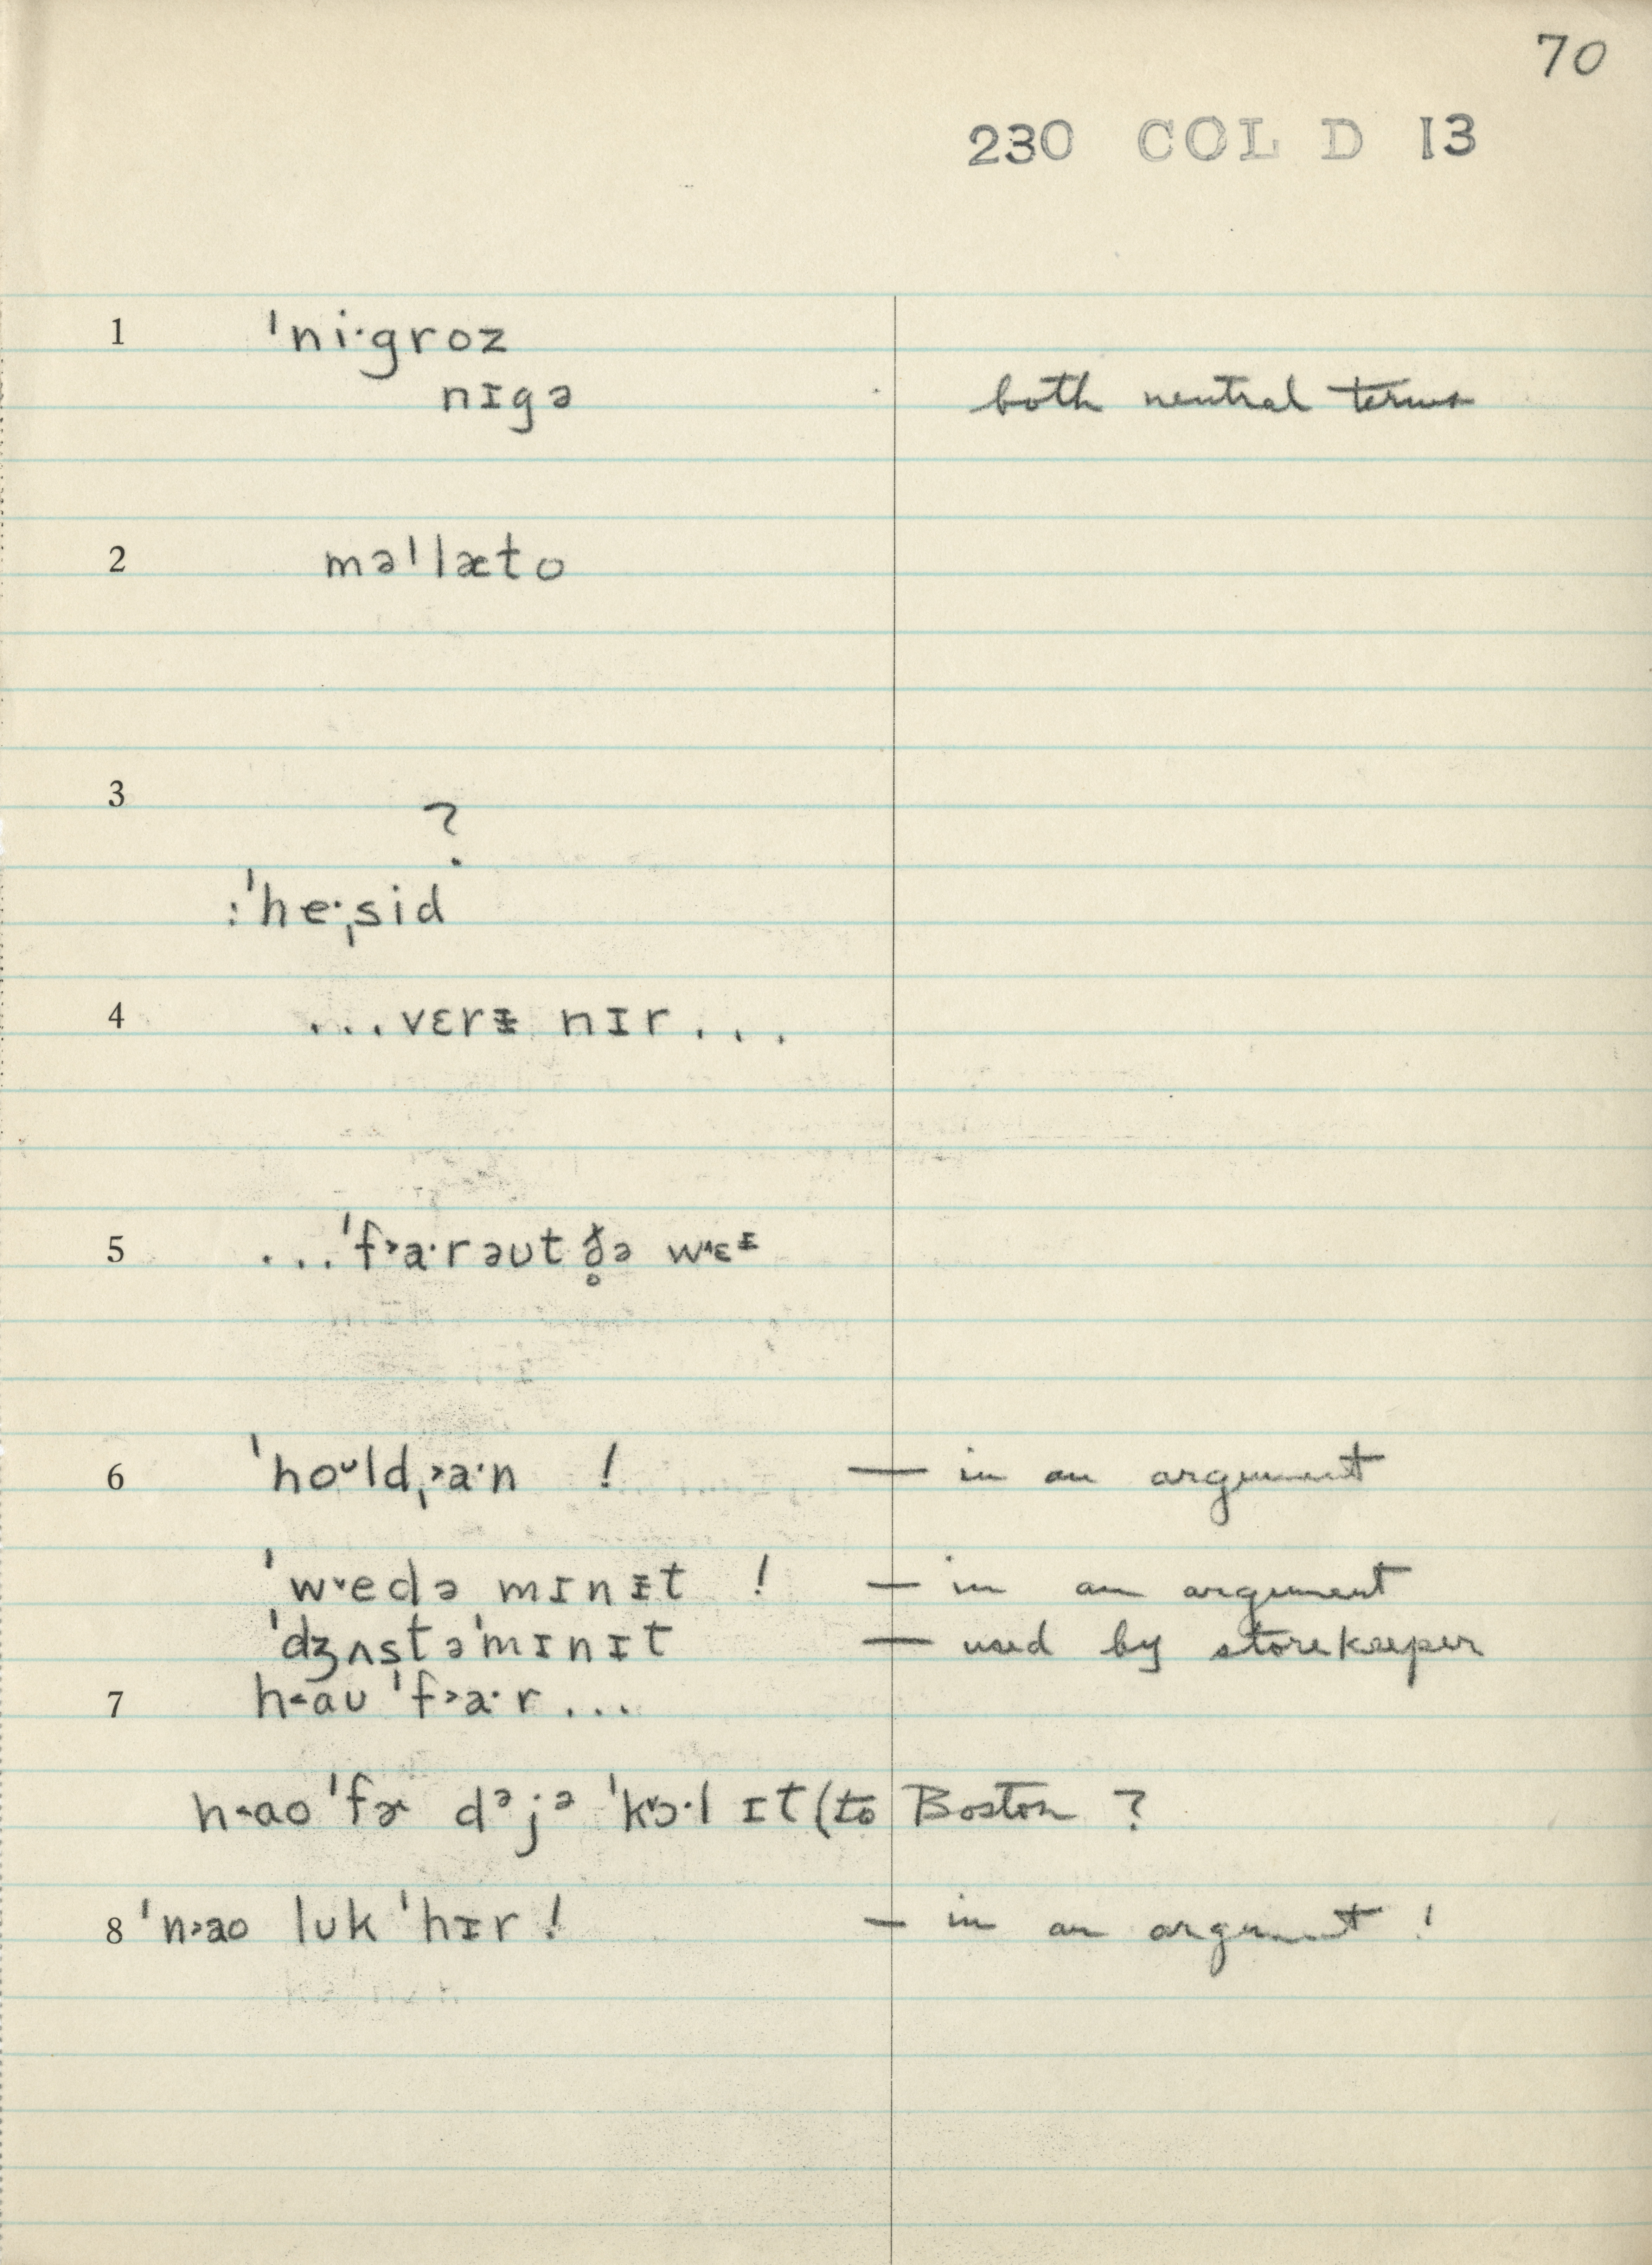 70
230 COL D 13
1 ˈni·groz
nɪgə both neutral terms
2 məˈlæto
3 ?
:ˈhe·ˌsid
4 ...vɛrᵻ nɪr...
5 ...ˈf˃a·rəʊt ð̥ə w˄ɛᵻ
6 ˈhoᵕld,˃a·n ! — in an argument
ˈw˅edə mɪnᵻt ! — in an argument
ˈdʒʌstəˈmɪnɪt — used by storekeeper
7 h˂aʊ ˈf˃a·r...
h˂ao ˈfɚ dᵊjᵊ ˈk˅ɔ·l ɪt (to Boston ?
8 ˈn˃ao lʊk ˈhɪr! — in an argument !